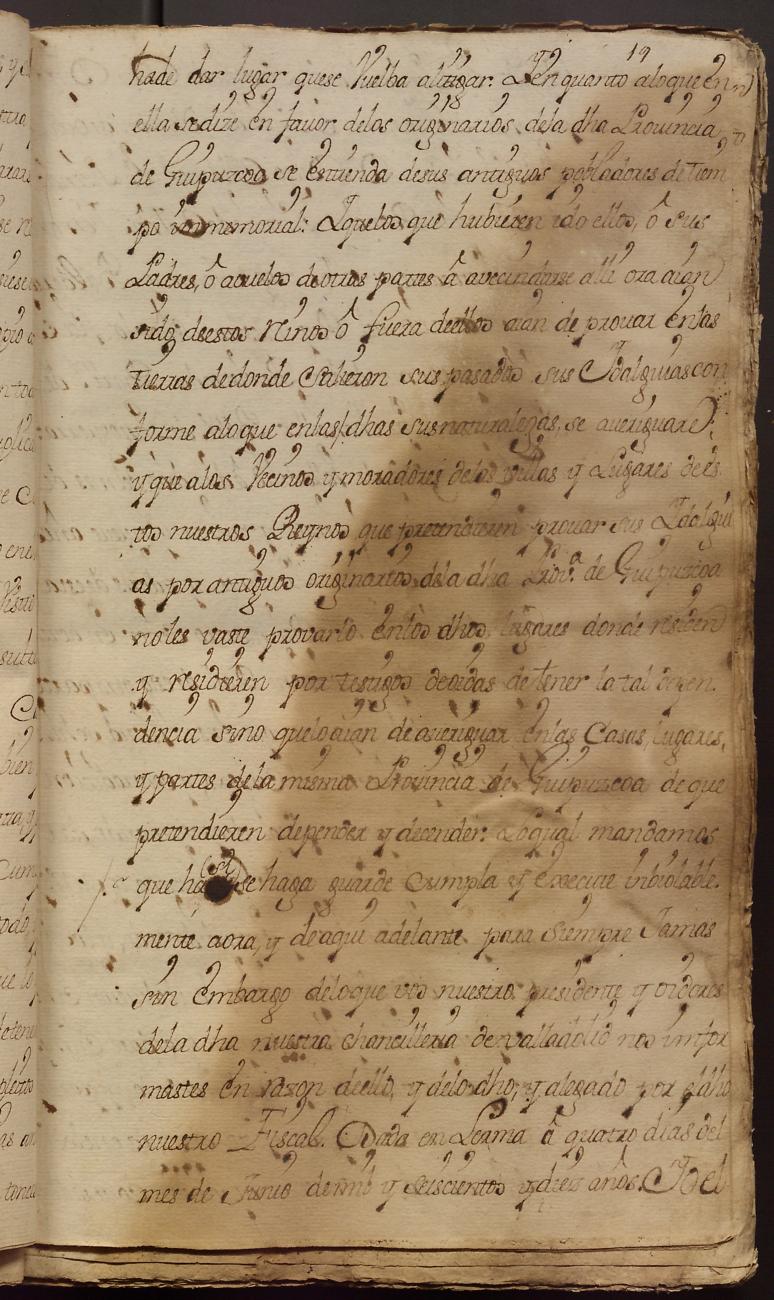 19
hade dar lugar quese Vuelba alitigar. Y en quanto aloque en
ella se dize en favor delos originarios dela dha Provincia
de Guipuzcoa se estienda desus antiguos pobladores de tiem
po inmemorial: Yquelos que hubieren ido ellos, ô sus
Padres, ô aguelos de otras partes â avecindarse alli ora aian
sido destos Reinos ô fuera deellos aian de provar enlas
tierras de donde salieron sus pasados sus Ydalguias con
forme aloque enlas dhas sus naturalezas, se averiguare;
y que alos Vecinos y moradores delas villas y Lugares des
tos nuestros Reynos que pretendieren provar sus Ydalgui
as por antiguos originarios dela dha Prov.ª de Guipuzcoa
noles vaste provarlo enlos dhos lugares donde residen
y residieren por testigos deoidas de tener la tal depen.
dencia sino quelo aian de averiguar enlas Casas, lugares,
y partes dela misma Provincia de Guipuzcoa de que
pretendieren depender y decender: Loqual mandamos
que ha se haga guarde cumpla y execute inbiolable.
mente aora, y de aqui adelante para siempre Jamas
sin embargo deloque vos nuestro presidente y oidores
dela dha nuestra chancilleria devalladolid nos infor
mastes en razon deello, y delo dho, y alegado por eldho
nuestro Fiscal. Dada en Lerma â quatro dias del
mes de Junio demil y seiscientos y diez años. Yo el